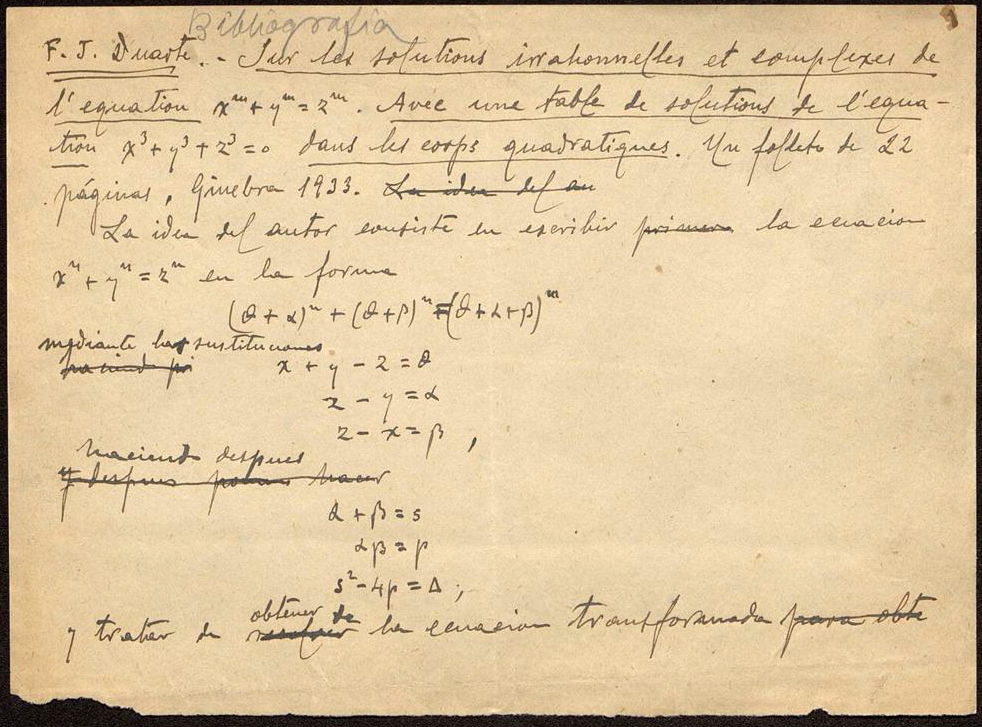 Bibliografia
F. J. Duarte. - Sur les solutions irrationnelles et complexes de
l'equation xⁿ + yⁿ = zⁿ. Avec une table de solutions de l'equa-
tion x³ + y³ + z³ = 0 dans les corps quadratiques. Un folleto de 22
páginas, Ginebra 1933. La idea del au
La idea del autor consiste en escribir primero la ecuacion
xⁿ + yⁿ = zⁿ en la forma
(θ + α)ⁿ + (θ + β)ⁿ = (θ + α + β)ⁿ
mediante las sustituciones
haciend
x + y - z = θ
z - y = α
z - x = β ,
haciendo despues
y despues hacer
α + β = s
αβ = p
s² - 4p = Δ ;
obtener de
y tratar de resolver la ecuacion transformada para obte